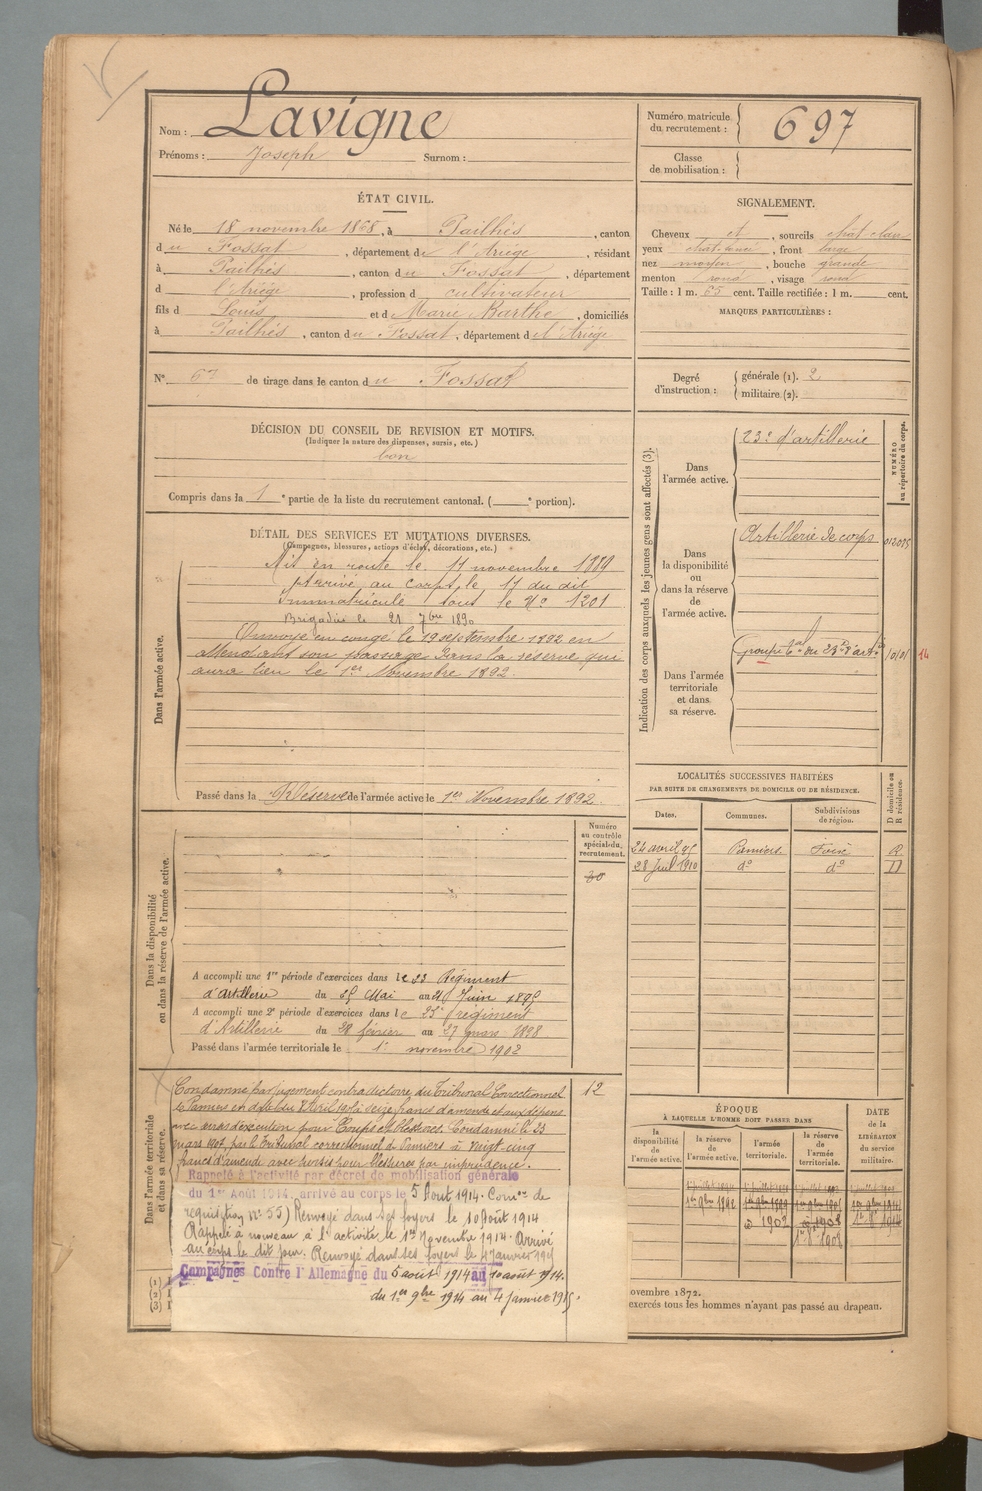 Nom : Lavigne
Prénoms : Joseph Surnom :
Numéro matricule du recrutement : 697
Classe de mobilisation :
ÉTAT CIVIL.
Né le 18 novembre 1868, à Pailhés, canton
du Fossat, département de l'Ariége, résidant
à Pailhés, canton du Fossat, département
d l'Ariége, profession d cultivateur
fils d Louis et d Marie Barthe, domiciliés
à Pailhés, canton du Fossat, département d l'Ariége
N° 67 de tirage dans le canton du Fossat
SIGNALEMENT.
Cheveux et, sourcils chat clair
yeux chat foncé, front large
nez moyen, bouche grande
menton rond, visage rond
Taille : 1 m. 65 cent. Taille rectifiée : 1 m. cent.
MARQUES PARTICULIÈRES :
Degré d'instruction : générale (1). 2
militaire (2).
DÉCISION DU CONSEIL DE REVISION ET MOTIFS.
(Indiquer la nature des dispenses, sursis, etc.)
bon
Compris dans la 1e partie de la liste du recrutement cantonal. ( e portion).
DÉTAIL DES SERVICES ET MUTATIONS DIVERSES.
(Campagnes, blessures, actions d'éclat, décorations, etc.)
Dans l'armée active.
Mis en route le 17 novembre 1889
Arrivé au corps le 17 du dit
Immatriculé sous le No 1201
Brigadier le 21 7bre 1890
Envoyé en congé le 19 septembre 1892 en
attendant son passage dans la réserve qui
aura lieu le 1er Novembre 1892.
Passé dans la Réserve de l'armée active le 1er Novembre 1892.
Indication des corps auxquels les jeunes gens sont affectés (3).
NUMÉRO au répertoire du corps.
Dans l'armée active.
23e d'artillerie
Dans la disponibilité ou dans la réserve de l'armée active.
Artillerie de corps
Dans l'armée territoriale et dans sa réserve.
14
LOCALITÉS SUCCESSIVES HABITÉES
PAR SUITE DE CHANGEMENTS DE DOMICILE OU DE RÉSIDENCE.
D domicile ou R résidence.
Dates. Communes. Subdivisions de région.
24 avril 95 Pamiers. Foix R
28 Juil 1910 do do D
Dans la disponibilité ou dans la réserve de l'armée active.
Numéro au contrôle spécial du recrutement.
A accompli une 1re période d'exercices dans le 23 Régiment
d'Artillerie du 25 Mai au 21 Juin 1895
A accompli une 2e période d'exercices dans le 23e régiment
d'Artillerie du 28 février au 27 mars 1898
Passé dans l'armée territoriale le 1er novembre 1902
Dans l'armée territoriale et dans sa réserve.
12
Condamné par jugement contradictoire du Tribunal Correctionnel
de Pamiers en date du avril à seize francs d'amende et aux dépens
avec sursis d'exécution pour Coups et blessures. Condamné le 23
mars 1907 par le Tribunal correctionnel de Pamiers à vingt-cinq
francs d'amende avec sursis pour blessures par imprudence.
Rappelé à l'activité par décret de mobilisation générale
du 1er Août 1914, arrivé au corps le 5 Août 1914. Comon de
requisition no 55) Renvoyé dans ses foyers le 10 Août 1914
Rappelé à nouveau à l'activité le 1er Novembre 1914. Arrivé
au corps le dit jour. Renvoyé dans ses foyers le 4 Janvier 1915
Campagnes Contre l'Allemagne du 5 août 1914 au 10 août 1914.
du 1er 9bre 1914 au 4 janvier 1915.
(1)
(2)
(3)
ÉPOQUE
À LAQUELLE L'HOMME DOIT PASSER DANS
la disponibilité de l'armée active. la réserve de l'armée active. l'armée territoriale. la réserve de l'armée territoriale.
DATE de la LIBÉRATION du service militaire.
1er 9bre 1892
1902 1908
ovembre 1872.
exercés tous les hommes n'ayant pas passé au drapeau.